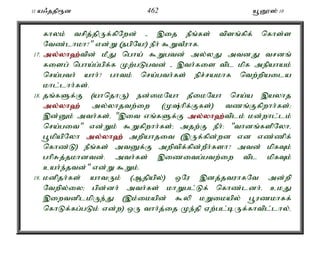 11 யஃததிரூன 462 யூனூஸ் 10
காலம் வசித்திருக்கிறேன் - இதை நீங்கள் விளங்கிக் கொள்ள
வேண்டாமா?" என்று (நபியே!) நீர் கூறுவீராக.
17. அல்லாஹ்வின் மீது பொய் கூறுபவன் அல்லது அவனது வசனங்
களைப் பொய்ப்பிக்க முற்படுபவன் - இவர்களை விட மிக அநியாயம்
செய்பவர் யார்? பாவம் செய்பவர்கள் நிச்சயமாக வெற்றியடைய
மாட்டார்கள்.
18. தங்களுக்கு (யாதொரு) நன்மையோ தீமையோ செய்ய இயலாத
அல்லாஹ் அல்லாதவற்றை (முஷ்ரிக்குகள்) வணங்குகிறார்கள்;
இன்னும் அவர்கள், "இவை எங்களுக்கு அல்லாஹ்விடம் மன்றாட்டம்
செய்பவை" என்றும் கூறுகிறார்கள்; அதற்கு நீர்: "வானங்களிலோ,
பூமியிலோ அல்லாஹ் அறியாதவை (இருக்கின்றன என எண்ணிக்
கொண்டு) நீங்கள் அவனுக்கு அறிவிக்கின்றீர்களா? அவன் மிகவும்
பரிசுத்தமானவன். அவர்கள் இணைவைப்பவற்றை விட மிகவும்
உயர்ந்தவன்" என்று கூறும்.
19. மனிதர்கள் யாவரும் (ஆதியில்) ஒரே இனத்தவராகவே அன்றி
வேறில்லை; பின்னர் அவர்கள் மாறுபட்டுக் கொண்டனர். உமது
இறைவனிடமிருந்து (இம்மையின் கூலி மறுமையில் பூரணமாகக்
கொடுக்கப்படும் என்ற) ஒரு வார்த்தை முந்தி ஏற்பட்டிருக்காவிட்டால்,